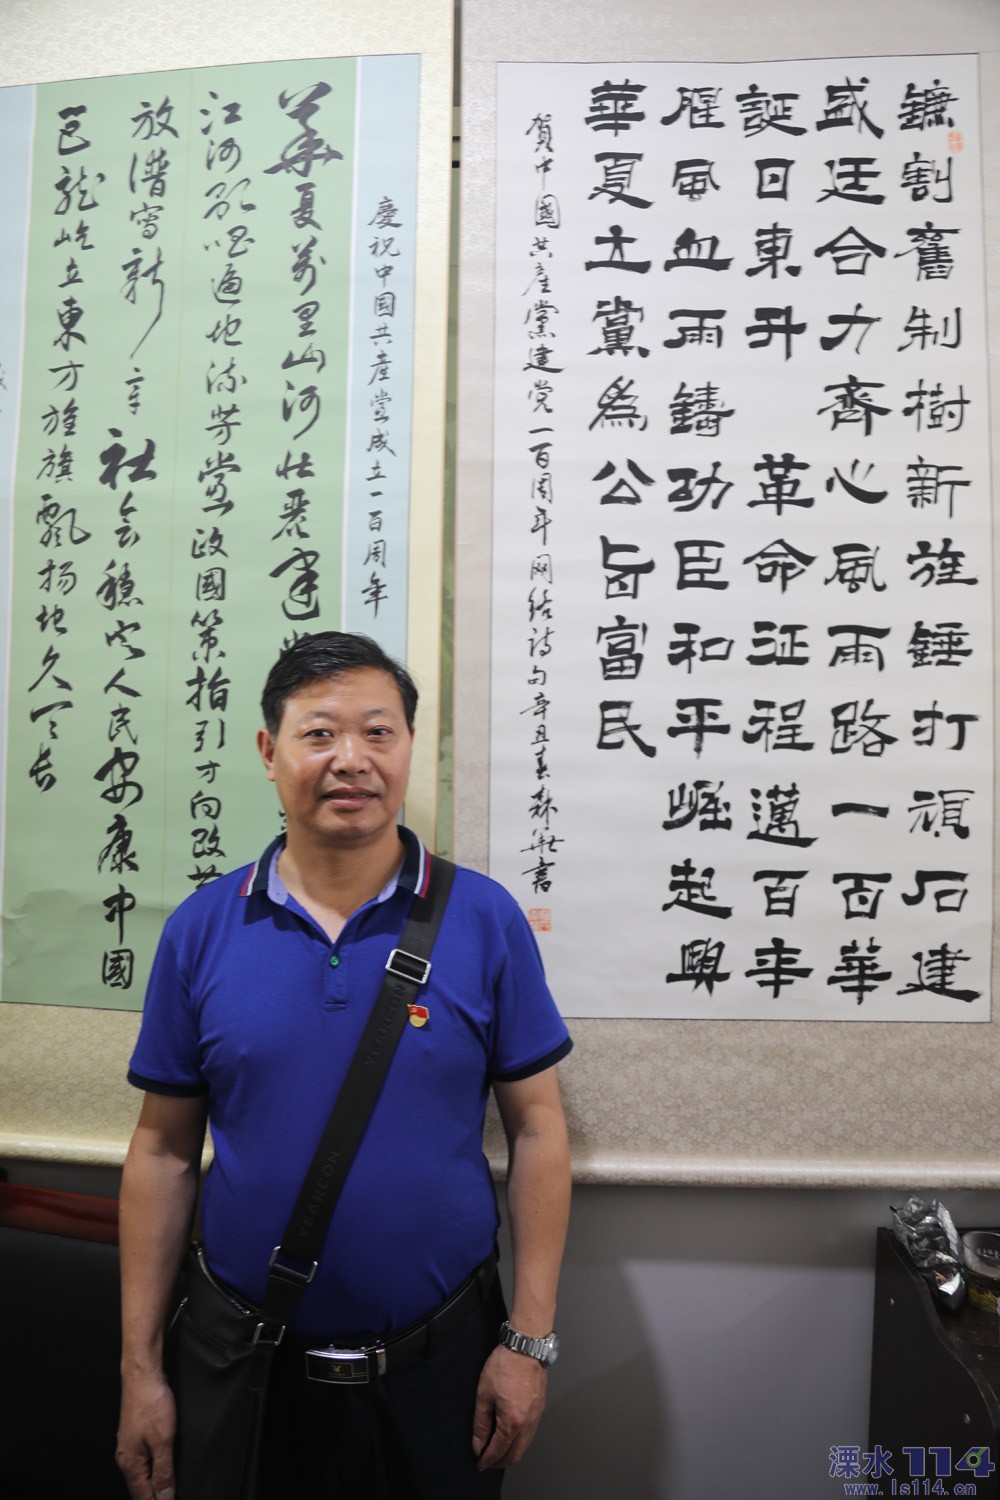 鐮割舊制樹新旌錘打頑石建
盛廷合力齊心風雨路一百華
誕日東升 革命征程邁百年
腥風血雨鑄功臣和平崛起興
華夏立黨為公旨富民
賀中國共產黨建党一百周年网结诗句辛丑春書
慶祝中国共產黨成立一百周年
華夏萬里山河壮麗建党
江河歌唱遍地流芳黨政國策指引方向改革
放谱寫新章社会穩定人民安康中國
巨龍屹立東方旌旗飄扬地久天长
YEARCON
YEARCON
溧水114
www.ls114.cn